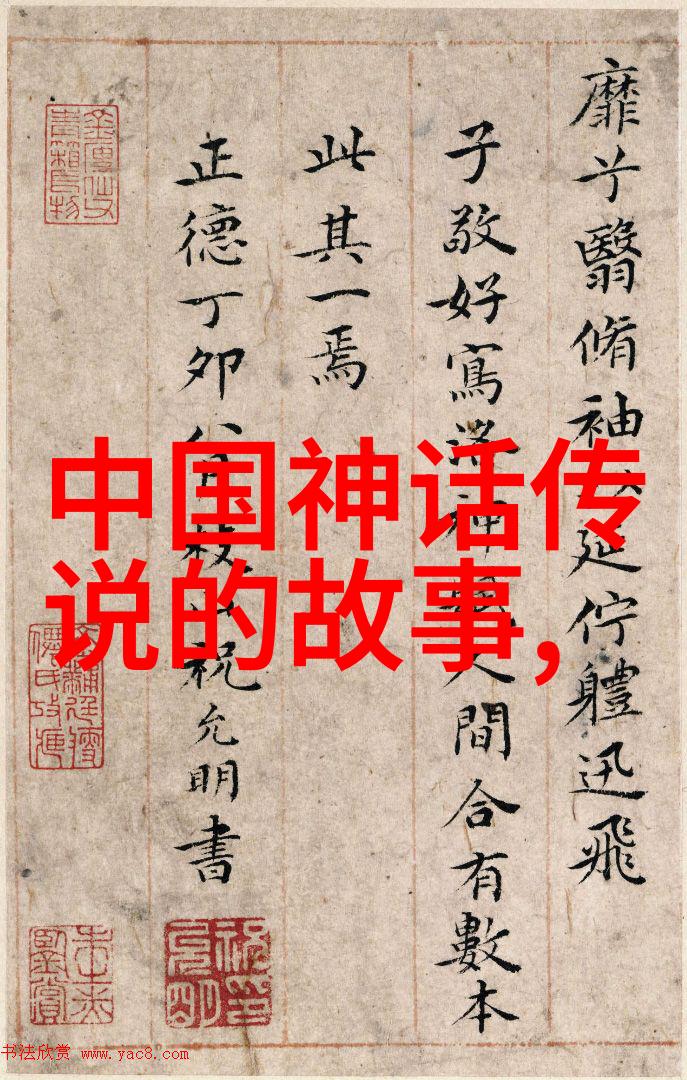 靡兮翳脩袖以延佇體迅飛
子敬好寫洛神賦人間合有數本
此其一焉
正德丁卯八月枝山祝允明書
中国神话传
说的故事,
书法欣赏 www.yac8.com